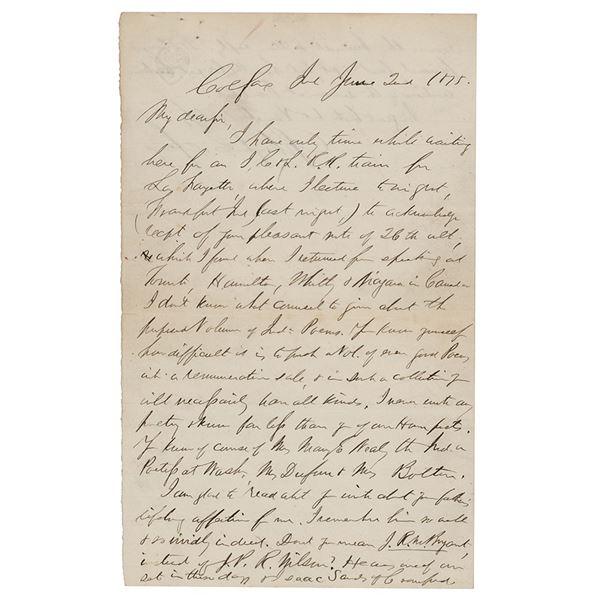 Colfax Ind June 2nd 1875.
My dear sir,
I have only time while waiting
here for an I. C & L. R.R. train for
La Fayette, where I lecture to night,
(Frankfort Ind, last night,) to acknowledge
recpt of your pleasant note of 26th ult,
which I found when I returned from speaking at
Toronto Hamilton, Whitby & Niagara in Canada
I don't know what counsel to give about the
proposed Volume of Inda Poems. You know yourself
how difficult it is to push a Vol. of even good Poems
into a remunerative sale, & in such a collection you
will necessarily have all kinds. I never write any
poetry & know far less than you of our Home poets.
You know of course of Mrs Mary E Nealy the Inda
Poetess at Wash, Mrs Dufour & Mrs Bolton.
I am glad to read what you write about your father's
lifelong affection for me. I remember him so well
& so vividly indeed. Dont you mean J. R. M. Bryant,
instead of J. P. R. Wilson? He was one of our
set in those days & Isaac Sands & Crawford